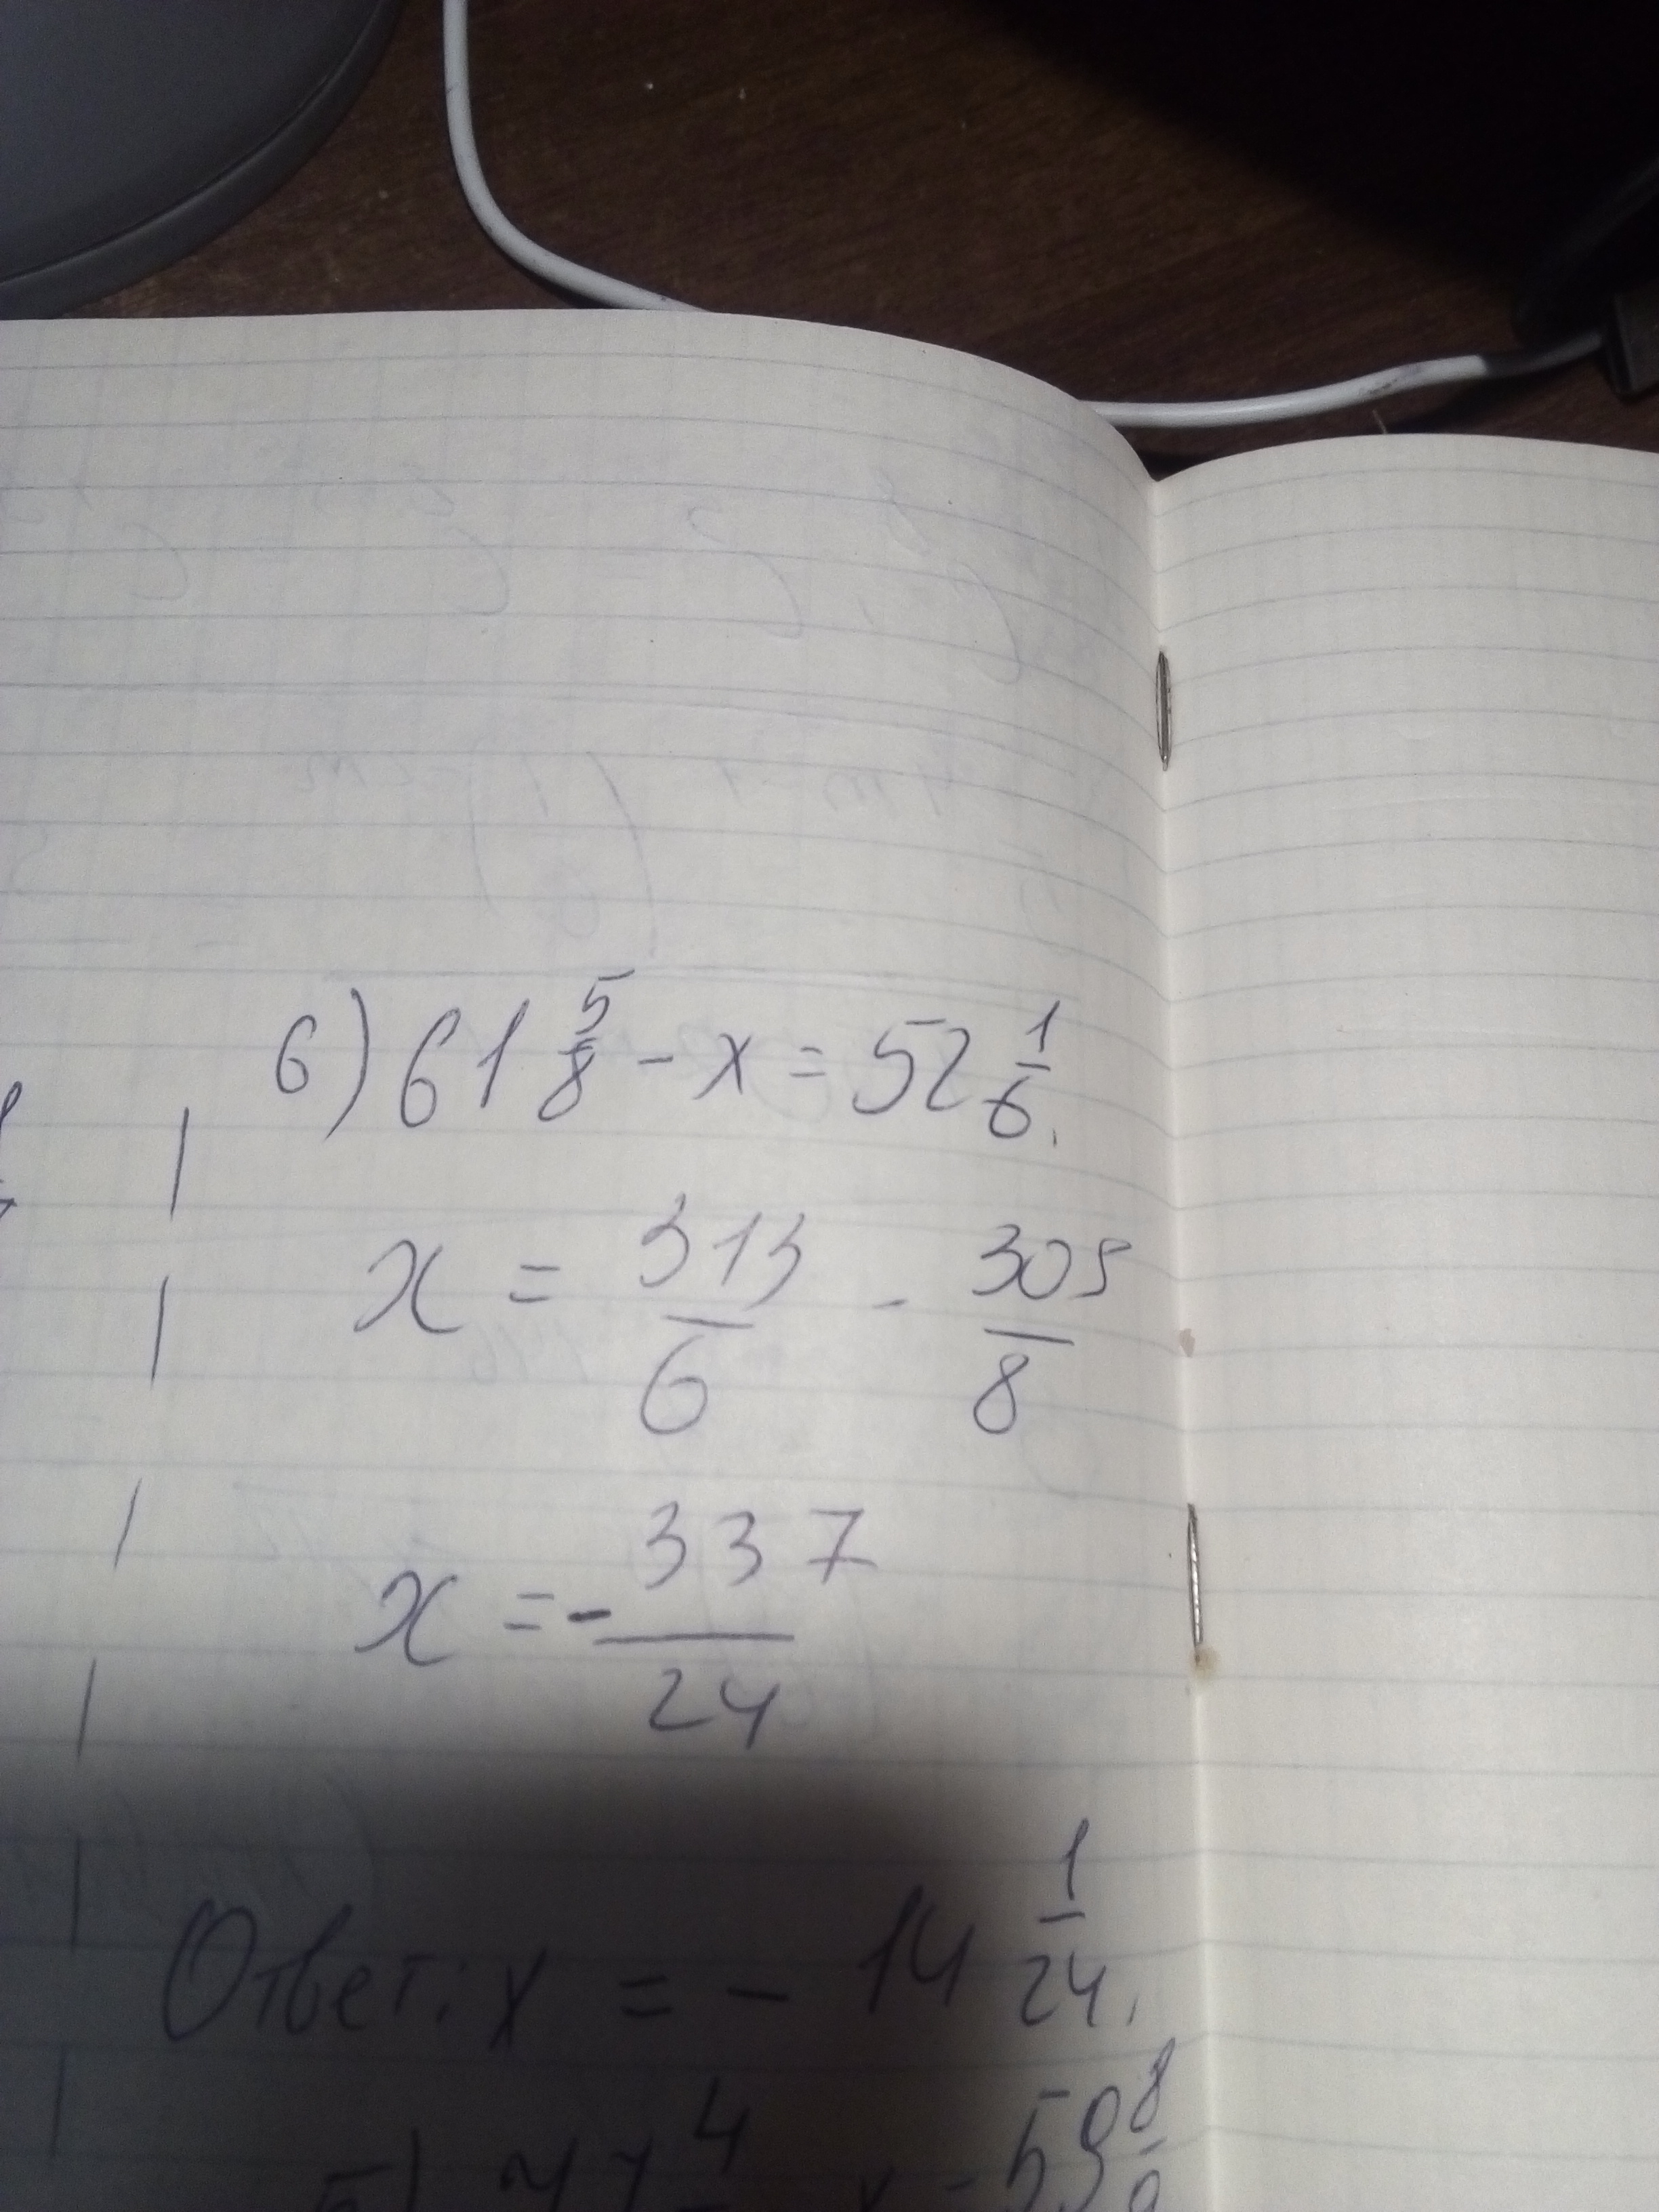 6) 61 5/8 - x = 52 1/6.
x = 313/6 - 305/8
x = - 337/24
Ответ: x = - 14 1/24.